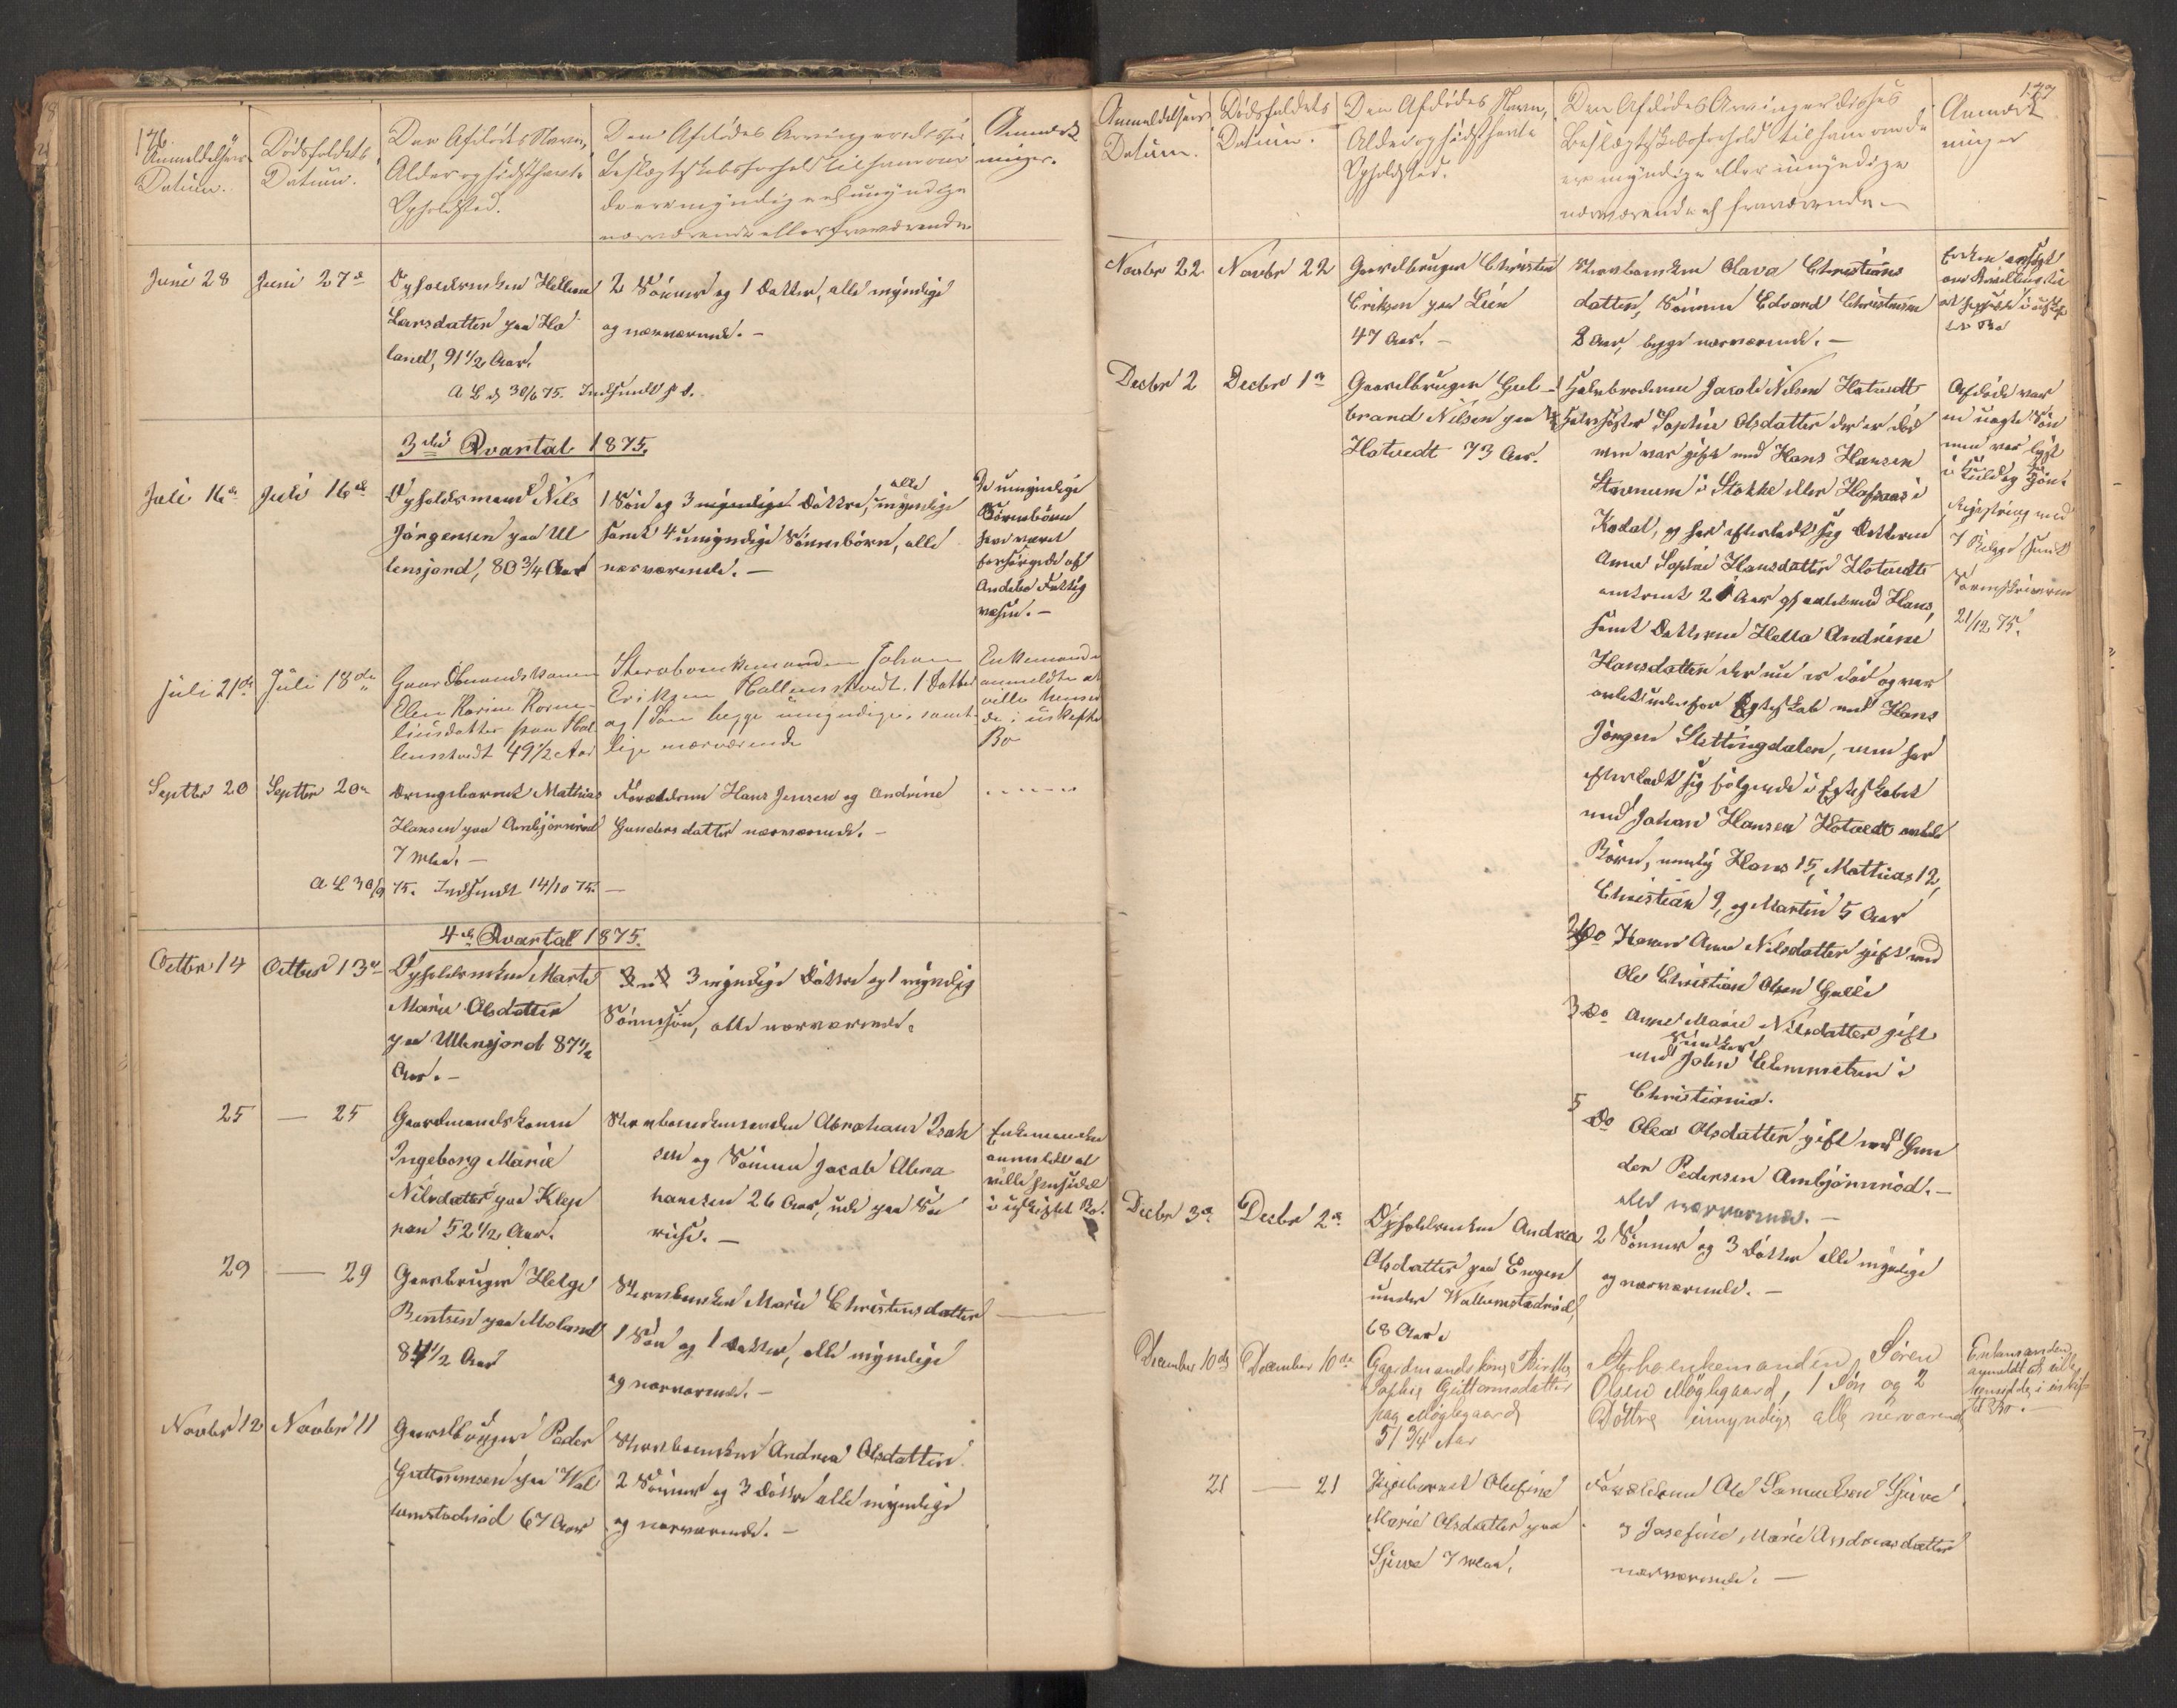 176.
Anmeldelsens
Datum.
Dødsfaldets
Datum.
Den Afdødes Navn,
Alder og sidst havte
Opholdsted.
Den Afdødes Arvinger disses
Beslægtskabsforhold til ham om
de ere myndige el umyndige
nærværende eller fraværende
Anmærk
ninger.
Juni 28
Juni 27de
Opholdsenken Hellene
Larsdatter paa Ho
land, 91 1/2 Aar.
2 Sönner og 1 Datter, alle myndige
og nærværende. -
A L d 30/6 75. Indsendt s. d.
3die Qvartal 1875.
Juli 16de
Juli 16de
Opholdsmand Nils
Jörgensen paa Ul
lensjord, 80 3/4 Aar
1 Sön og 3 myndige Döttre, alle myndige
samt 4 umyndige Sönnebörn, alle
nærværende. -
De umyndige
Börnebörn
have været
forsörgede af
Andebo Fattig
væsen. -
Juli 21de
Juli 18de
Gaardmandskonen
Elen Karine Korne-
liusdatter paa Hal
lenstvedt 49 1/2 Aar
Stervboenkemanden Johan
Eriksen Hallenstvedt. 1 Datter
og 1 Søn begge umyndige, samt-
lige nærværende
Enkemanden
anmeldte at
ville hensid
de i uskiftet
Bo
Septbr 20
Septbr 20de
Drengebarnet Mathias
Hansen paa Ambjörnröd
7 Mdr. -
Forældrene Hans Jensen og Andrine
Gundersdatter nærværende. -
A L 30/9 75. Indsendt 14/10 75. -
4de Qvartal 1875.
Octbr 14
Octbr 13de
Opholdsenken Marte
Marie Olsdatter
paa Ullensjord 87 1/2
Aar. -
3 myndige Döttre og 1 myndig
Sönnesön, alle nærværende.
25 - 25
Gaardmandskonen
Ingeborg Marie
Nilsdatter paa Klep
pan 52 1/2 Aar.
Stervboenkemanden Abraham Isak
sen og Sönnen Jacob Abra
hamsen 26 Aar, ude paa Sö
reise. -
Enkemanden
anmeldte at
ville hensidde
i uskiftet Bo.
29 - 29
Gaardbruger Helge
Bentsen paa Moland
84 1/2 Aar
Stervboenken Marie Christensdatter
1 Sön og 1 Datter, alle myndige
og nærværende. -
Novbr 12
Novbr 11
Gaardbruger Peder
Guttormsen paa Val
lumstadröd 67 Aar
Stervboenken Andrea Olsdatter
2 Sönner og 3 Döttre alle myndige
og nærværende. -
177
Anmeldelsens
Datum.
Dødsfaldets
Datum.
Den Afdødes Navn,
Alder og sidst havte
Opholdsted.
Den Afdødes Arvinger disses
Beslægtskabsforhold til ham om de
ere myndige eller umyndige
nærværende el fraværende
Anmærk
ninger
Novbr 22
Novbr 22
Gaardbruger Christen
Eriksen paa Lien
47 Aar. -
Stervboenken Olava Christians
datter, Sönnen Edvard Christensen
8 Aar, begge nærværende. -
Enken ansögt
om Bevilling til
at hensidde i uskif
tet Bo
Decbr 2
Decbr 1ste
Gaardbruger Gul
brand Nilsen paa
Hotvedt 73 Aar.
Halvbroderen Jacob Nilsen Hotvedt
Halvsöster Sophie Olsdatter der er död
men var gift med Hans Hansen
Stavnum i Stokke eller Hafsaas i
Kodal, og har efterladt sig Datteren
Anne Sophie Hansdatter Hotvedt
omtrent 21 Aar gl avlet med Hans,
samt Datteren Hella Andrine
Hansdatter der nu er död og var
avlet udenfor Egteskab med Hans
Jörgen Slettingdalen, men har
efterladt sig fölgende i Egteskabet
med Johan Hansen Hotvedt avlede
Börn, nemlig Hans 15, Mathias 12,
Christian 9, og Martin 5 Aar
2 Do Karen Anne Nilsdatter gift med
Ole Christian Olsen Gulli
3 Do Anne Marie Nilsdatter gift
med Snedker John Clemmetsen i
Christiania.
5 Do Olea Olsdatter gift med Gun
der Pedersen Ambjörnröd. -
alle nærværende. -
Afdöde var
en uægte Sön
men var lyst
i Kuld og Kjön.
Registrering med
7 Bilage sendt
Sorenskriveren
21/12 75.
Decbr 3de
Decbr 2de
Opholdsenken Andrea
Olsdatter paa Engen
under Wallumstadröd,
68 Aar.
2 Sönner og 3 Döttre alle myndige
og nærværende. -
December 10de
December 10de
Gaardmandskone Kirstine
Sophie Guttormsdatter
paa Møglegaard
51 3/4 Aar
Stervboenkemanden Søren
Olsen Møglegaard, 1 Søn og 2
Døttre umyndige alle nærværende
Enkemanden
anmeldte at ville
hensidde i uskif
tet Bo. -
21 - 21
Pigebarnet Olefine
Marie Olsdatter paa
Sjuve 7 Mdr.
Forældrene Ole Samuelsen Sjuve
og Josefine Marie Andreasdatter
nærværende. -